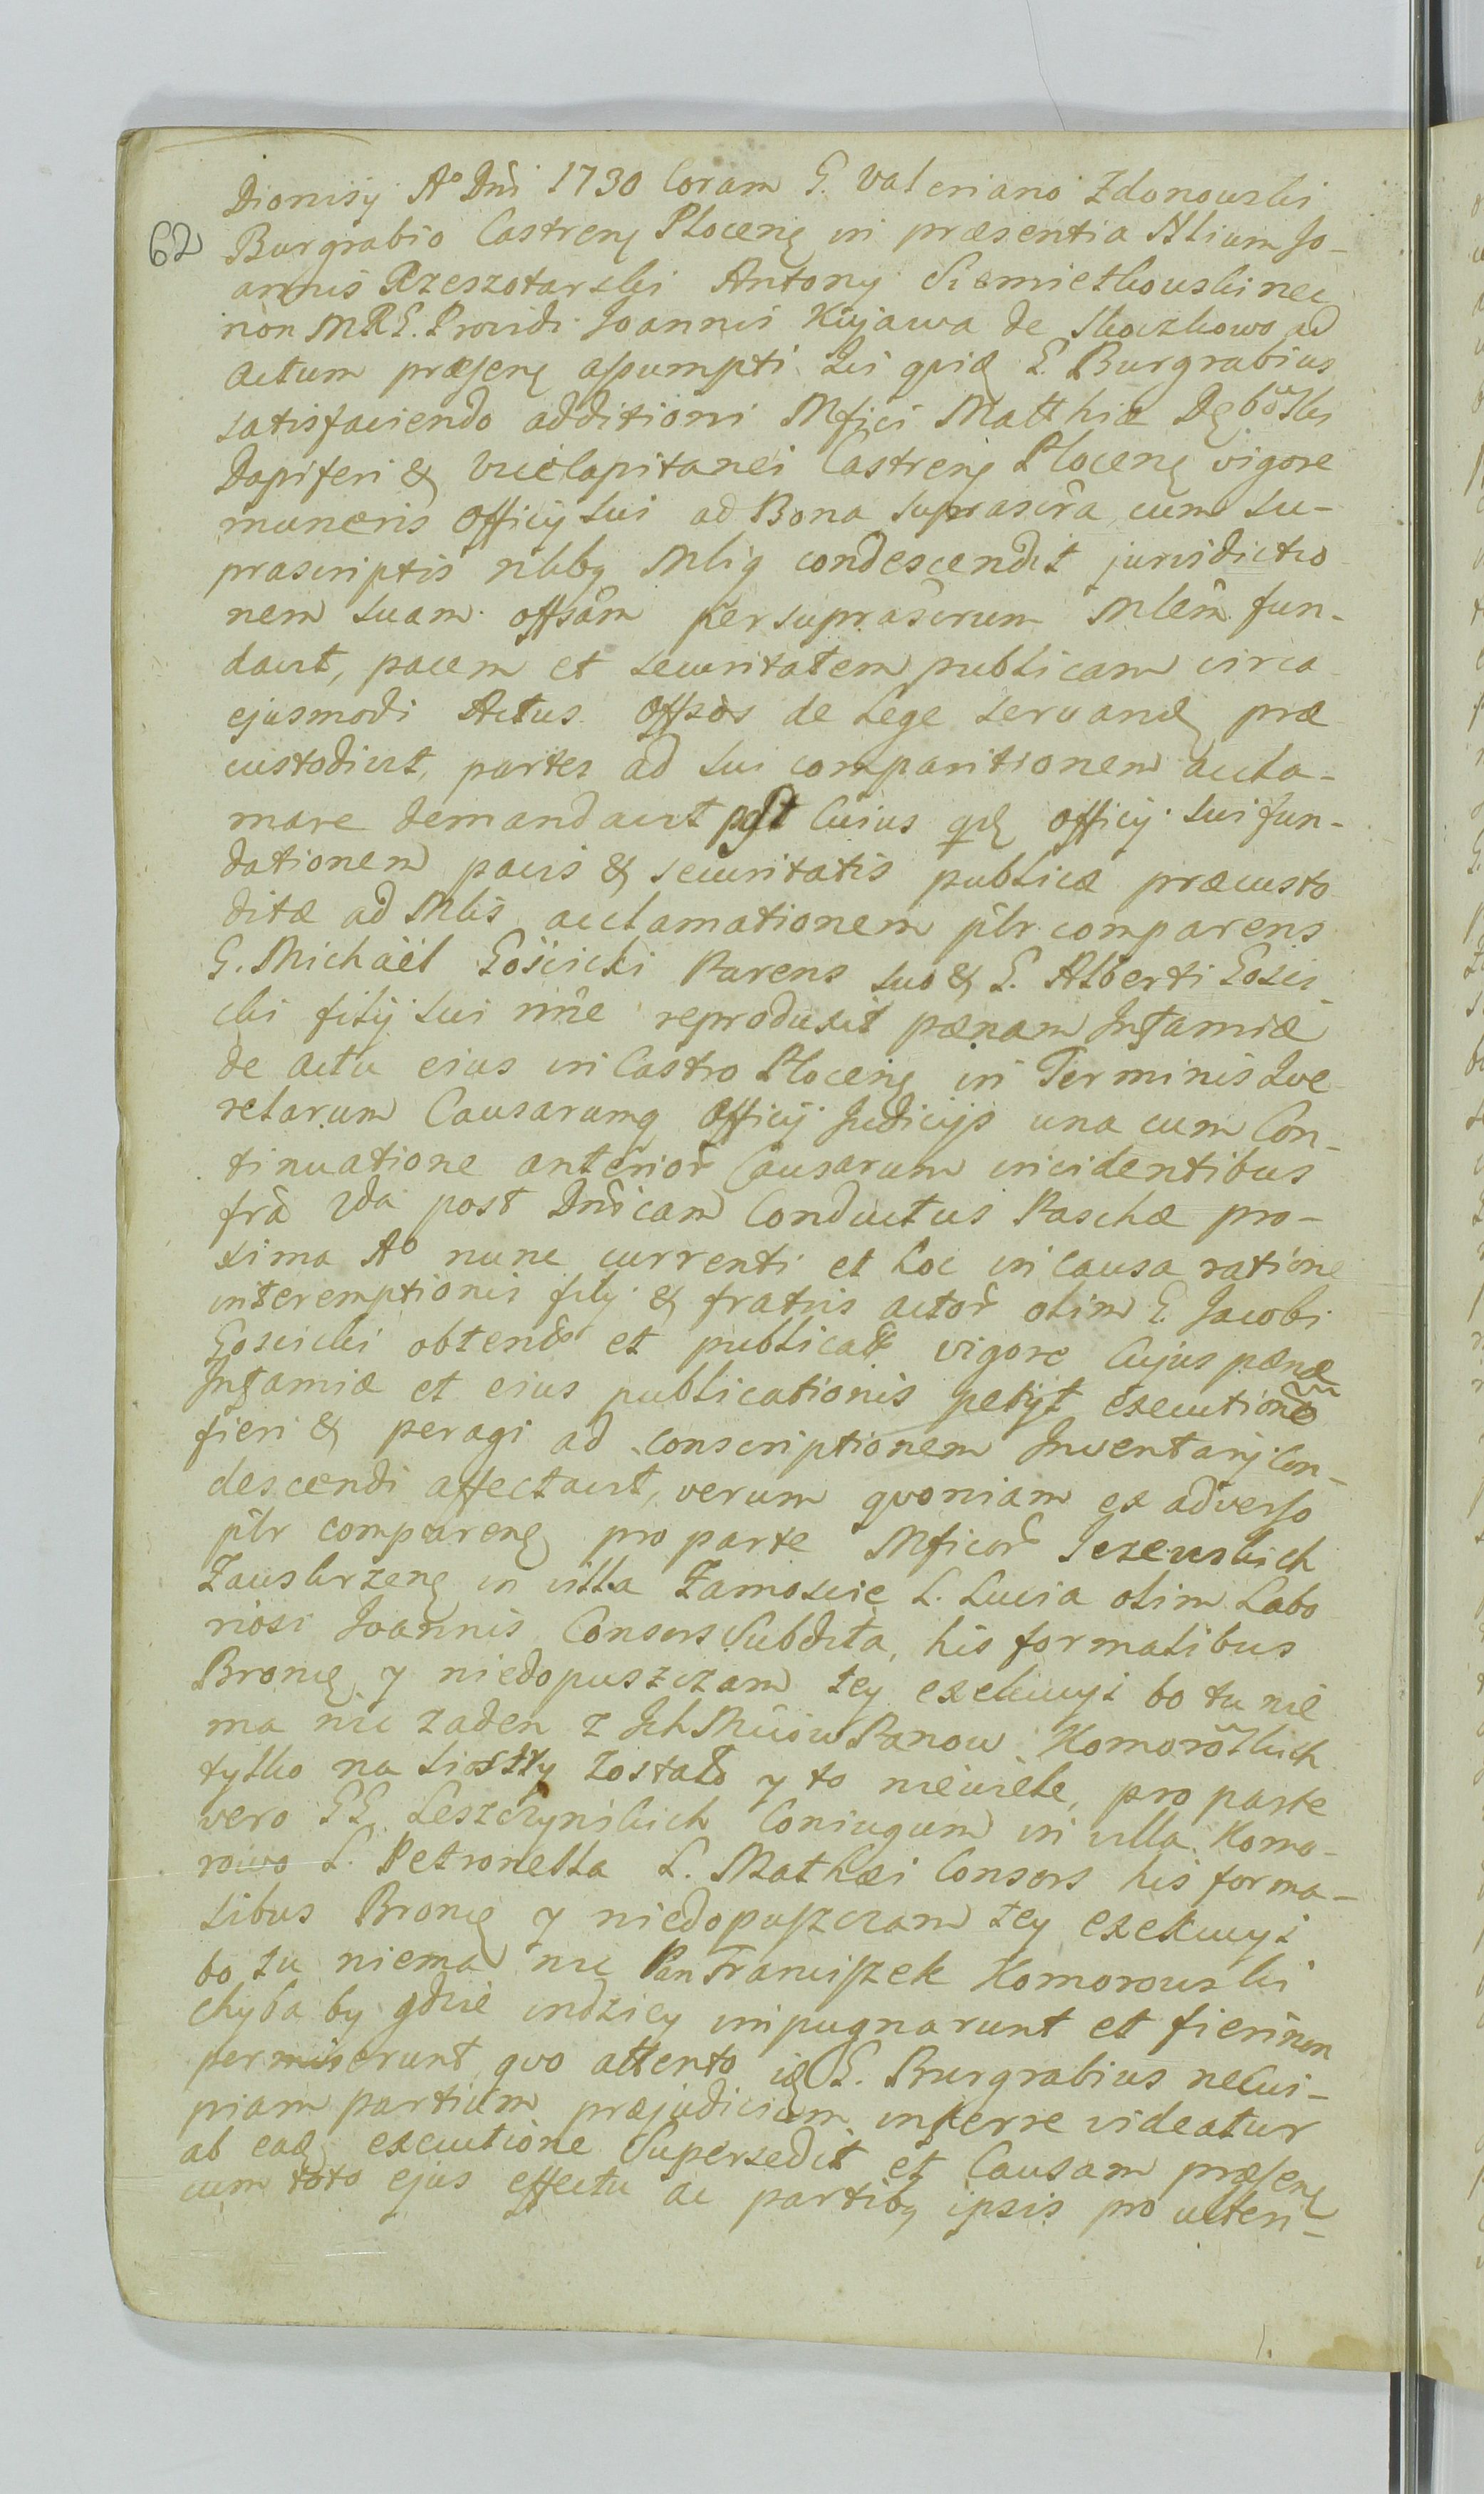 Dionisÿ Aº Dni 1730 Coram G. Valeriano Zdonowski
62
Burgrabio Castrenę Płocenę in præsentia Nlium Jo-
annis Rzeszotarski Antony Siemiethowski nec
non MRG. Providi Joannis Kujawa de Skoczkowo ad
actum præsenę assumpti. Isq quia G. Burgrabius
satisfaciendo additioni Mfici Matthiæ Dębowski
Dapiferi & ViceCapitanei Castrenę Płocenę vigore
muneris officÿ sui ad Bona suprascra cum su-
prascriptis nlibg Mliq condescendit jurisdictio
nem suam offsam per suprascrum Mlem fun-
davit, pacem et securitatem publicam circa
ejusmodi Actus offsos de Lege servandę præ
custodivit, partes ad sui comparitionem accla-
mare demandavit post Cuius quidę officÿ sui fun-
dationem pacis & securitatis publicæ præcusto
ditæ ad Mlis acclamationem plr comparens
G. Michäel Gościcki Parens suo & G. Alberti Gosci-
cki filÿ sui nne reproduxit pænam Infamiæ
de actu eius in Castro Płocenę in Terminis Que
relarum Causarumq officÿ Judicÿs una cum Con-
tinuatione anterior Causarum incidentibus
fra 2da post Dnicam Conductus Paschæ pro-
xima Aº nunc currenti et hoc in Causa ratione
interemptionis filÿ & fratris actor olim G. Jacobi
Goscicki obtent et publicat vigore Cujus pænæ
Infamiæ et eius publicationis petÿt executionē
fieri & peragi ad conscriptionem Inventarÿ Con-
descendi affectavit, verum quoniam ex adverso
plr comparenę pro parte Mficor Jezewskich
Zauskrzenę in villa Zamoscie L. Lucia olim Labo
riosi Joannis Consors Subdita, his formalibus
Bronię y niedopuszczam tey exekucyi bo tu nie
ma nic zaden z Ich Mciow Panow Komorowskich
tylko na siostry zostało y to niewiele, pro parte
vero GG. Leszczynskich Coniugum in villa Komo-
rowo L. Petronella L. Mathæi Consors his forma-
libus Bronię y niedopuszczam tey exekucyi
bo tu niema nic Pan Franciszek Komorowski
chyba by gdzie indziey impugnarunt et fieri non
permiserunt, quo attento idę G. Burgrabius ne Cui-
piam partium præjudicium inferre videatur
ab eadę executione Supersedit et Causam præsenę
cum toto ejus effectu ac partibg ipsis pro ulteri-